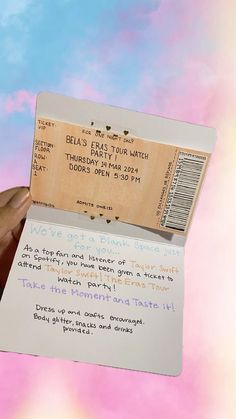 FOR ONE NIGHT ONLY
TICKET:
VIP
SECTION
FLOOR
ROW
A
SEAT
BELA'S ERAS TOUR WATCH
PARTY!
THURSDAY 14 MAR 2024
DOORS OPEN 5:30 PM
ADMITS ONE(1)
We've got a Blank Space just
for you:
As a top fan and listener of Taylor Swift
on Spotify, you have been given a ticket to
attend Taylor Swift! The Eras Tour
Watch party!
Take the Moment and Taste it!
Dress up and crafts encouraged.
Body glitter, snacks and drinks
provided.